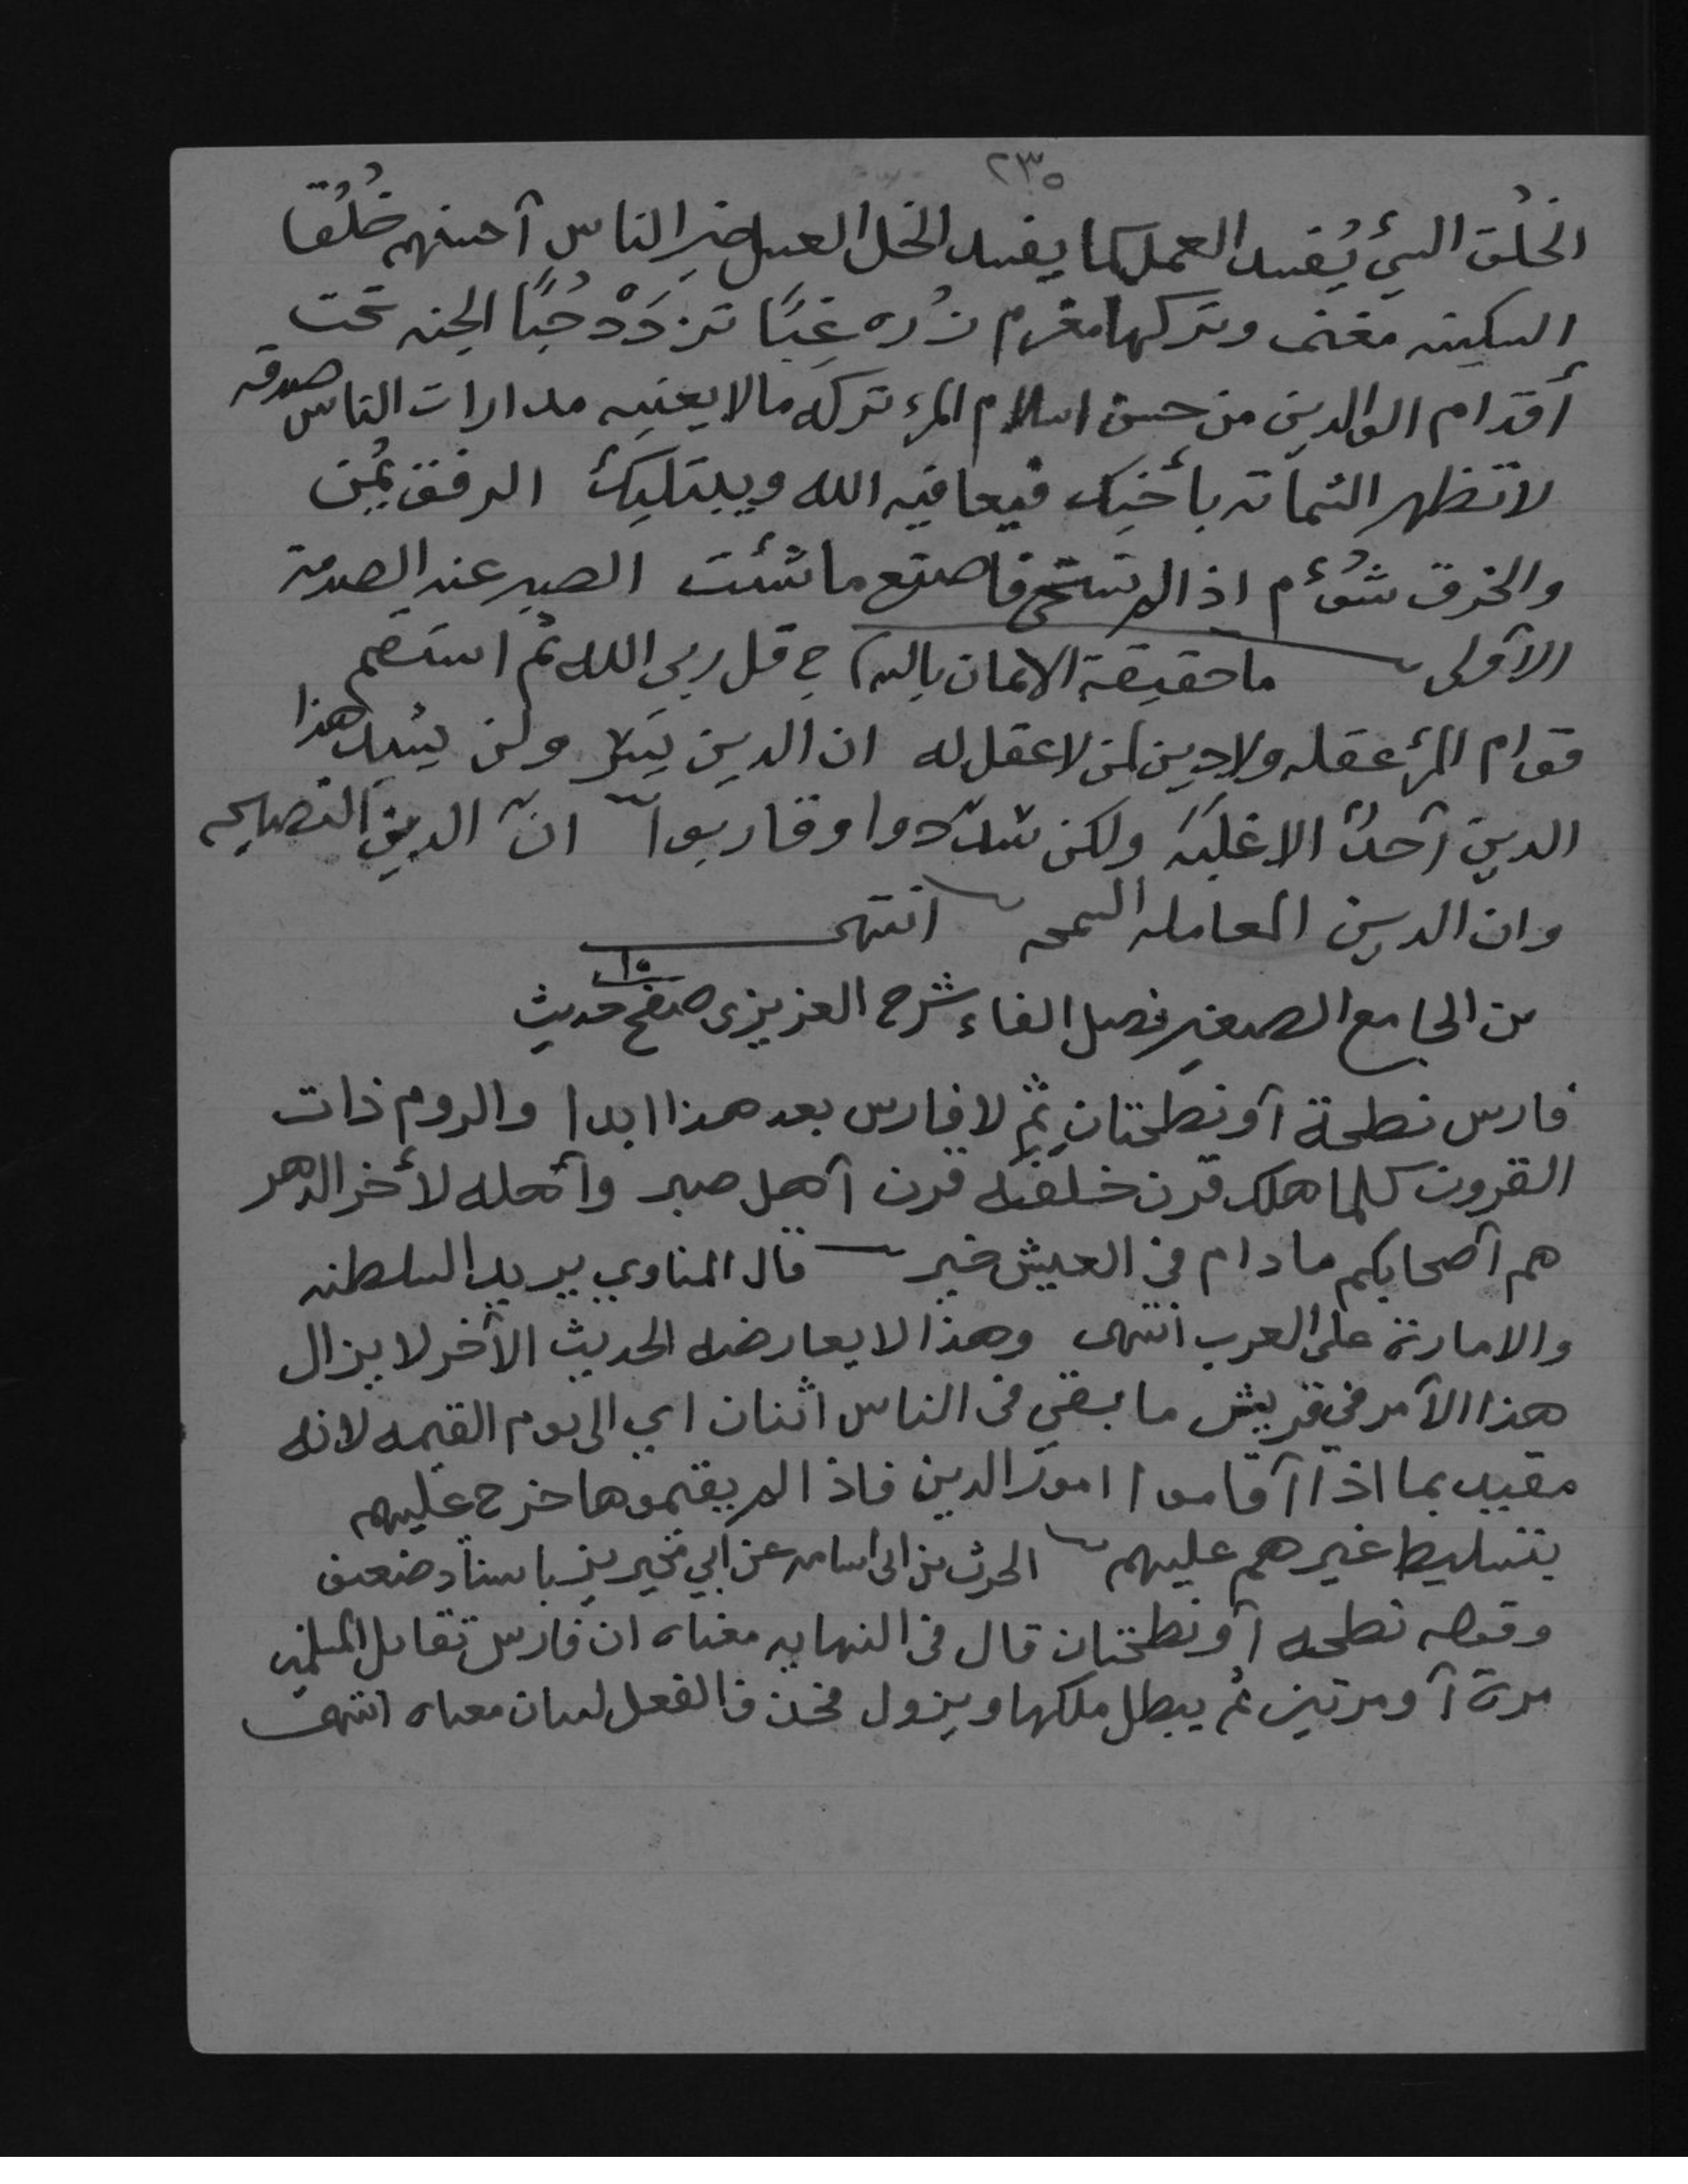 ٢٣٥
الخلُق السيئ يُفسد العمل كما يفسد الخل العسل خير الناس أحسنهم خُلُقا
السكينه مغنم وتركها مغرم زُره غِبًا تزدَدْ حُبًا الجنه تحت
أقدام الوالدين من حسن اسلام المرء تركه مالا يعنيه مدارات الناس صدقه
لا تظهر الشماته بأخيك فيعافيه الله ويبتليك الرفق يُمن
والخرق شُؤم اذا لم تستحي فاصنع ما شئت الصبر عند الصدمة
الأولى ما حقيقة الايمان بالله ج قل ربي الله ثم استقم
قوام المرء عقله ولا دين لمن لا عقل له ان الدين يسر ولن يشد هذا
الدين أحدٌ الا غلبَهُ ولكن سدّدوا وقاربوا انّ الدين النصايحه
وان الدين المعامله السمحه انتهى
من الجامع الصغير فصل الفاء شرح العزيزى صفح ١٥ حديث
فارس نطحة أو نطحتان ثم لا فارس بعد هذا ابدا والروم ذات
القرون كلما هلك قرن خلفه قرن أهل صبر وأهله لأخر الدهر
هم أصحابكم ما دام في العيش خير قال المناوي يريد السلطنه
والامارة على العرب انتهى وهذا لا يعارضه الحديث الآخر لا يزال
هذا الأمر في قريش ما بقي في الناس اثنان اي الى يوم القيمه لانه
مقيد بما اذا أقاموا امور الدين فاذا لم يقيموها خرج عليهم
بتسليط غيرهم عليهم الحرث بن ابى اسامه عن أبي محيريز باسناد ضعيف
وقوله نطحه أو نطحتان قال في النهايه معناه ان فارس تقاتل المسلمين
مرة أو مرتين ثم يبطل ملكها ويزول فحذف الفعل لبيان معناه انتهى